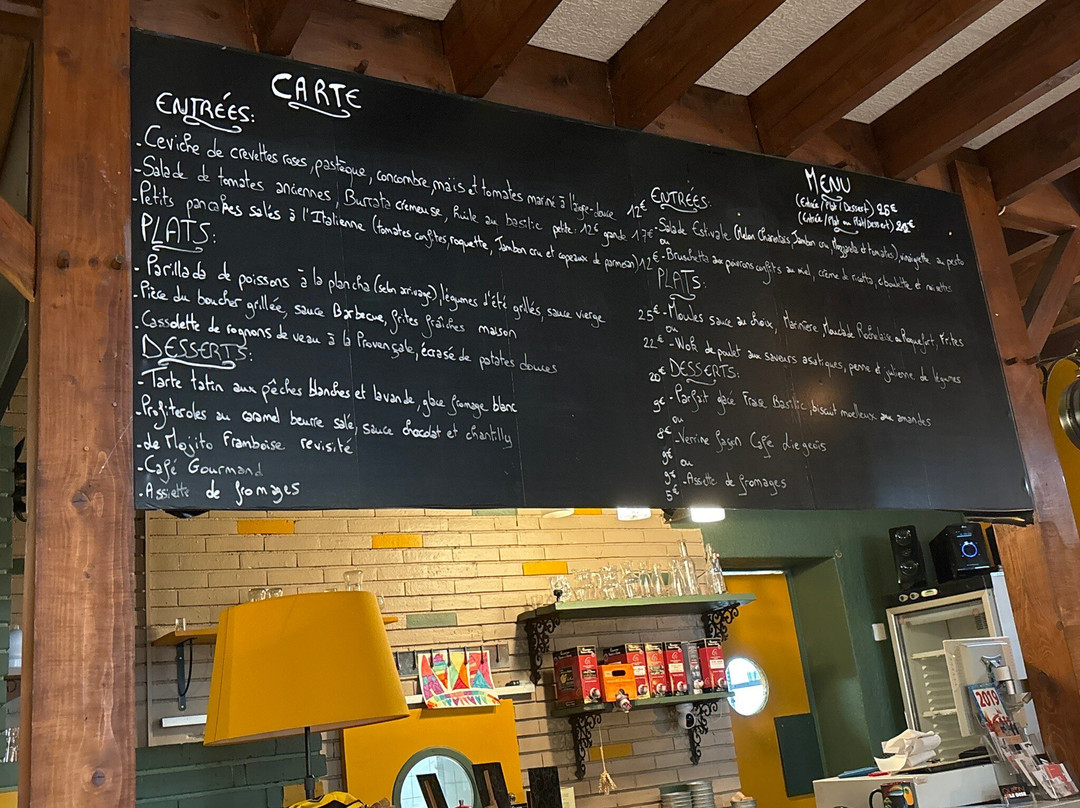 CARTE
ENTRÉES:
- Ceviche de crevettes roses, pastèque, concombre, maïs et tomates mariné à l'aigre-douce 12€
- Salade de tomates anciennes, Burrata crémeuse, huile au basilic petite: 12€ grande 17€
- Petits pancakes salés à l'Italienne (tomates confites, roquette, Jambon cru et copeaux de parmesan) 12€
PLATS:
- Parillada de poissons à la plancha (selon arrivage), légumes d'été grillés, sauce vierge 25€
- Pièce du boucher grillée, sauce Barbecue, frites fraîches maison 22€
- Cassolette de rognons de veau à la Provençale, écrasé de patates douces 20€
DESSERTS:
- Tarte tatin aux pêches blanches et lavande, glace fromage blanc 9€
- Profiteroles au caramel beurre salé, sauce chocolat et chantilly 8€
- de Mojito Framboise revisité 9€
- Café Gourmand 9€
- Assiette de fromages 5€
MENU
(Entrée / Plat / Dessert) 26€
(Entrée / Plat ou Plat / Dessert)
ENTRÉES:
- Salade Estivale (Melon Charentais, Jambon cru, Mozzarella et tomates), vinaigrette au pesto
ou
- Bruschetta aux poivrons confits au miel, crème de ricotta, ciboulette et noisettes
PLATS:
- Moules sauce au choix, Marinière Mouclade Rochelaise ou Roquefort, Frites
ou
- Wok de poulet aux saveurs asiatiques, penne et julienne de légumes
DESSERTS:
- Parfait glacé Fraise Basilic, biscuit moelleux aux amandes
ou
- Verrine façon Café liégeois
ou
- Assiette de fromages
2019